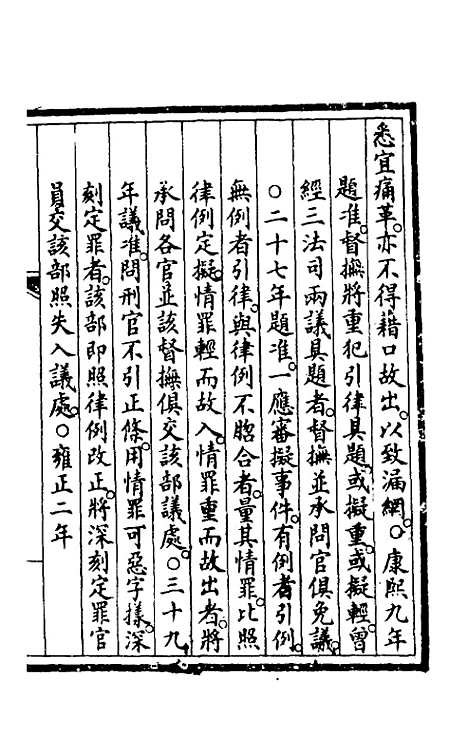 悉宜痛革。亦不得藉口故出。以致漏網。○康熙九年
題准。督撫將重犯引律具題。或擬重。或擬輕。曾
經三法司兩議具題者。督撫並承問官俱免議。
○二十七年題准。一應審擬事件。有例者引例。
無例者引律。與律例不脗合者。量其情罪。比照
律例定擬。情罪輕而故入。情罪重而故出者。將
承問各官並該督撫俱交該部議處。○三十九
年議准。問刑官不引正條。用情罪可惡字樣。深
刻定罪者。該部即照律例改正。將深刻定罪官
員交該部照失入議處。○雍正二年